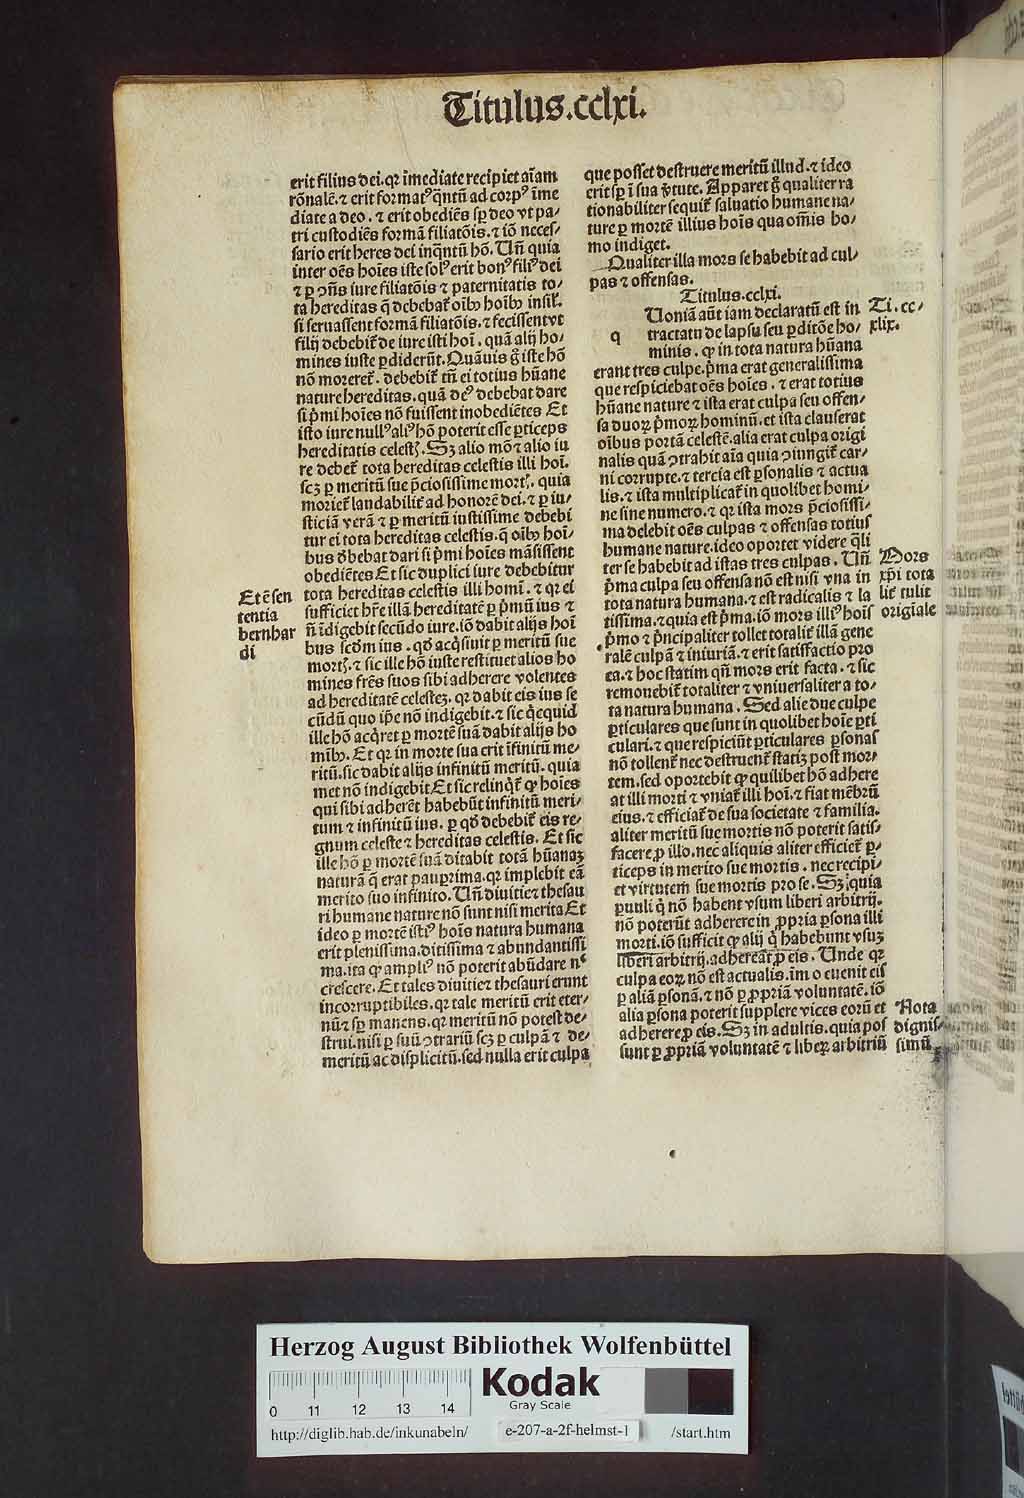 Titulus.cclxi.
erit filius dei.qꝛ īmediate recipiet aīam
rōnalē.⁊ erit formatꝰ q̄ntū ad corpꝰ īme
diate a deo.⁊ erit obediēs sꝑ deo vt pa⸗
tri custodiēs formā filiatōis.⁊ iō neces⸗
sario erit heres dei inq̄ntū hō. Un̄ quia
inter oēs hoīes iste solꝰ erit bonꝰ filiꝰ dei
⁊ ꝑ ↄn̄s iure filiatōis ⁊ paternitatis to⸗
ta hereditas q̄ debebat̄ oībꝫ hoībꝫ insil̄.
si seruassent formā filiatōis.⁊ fecissent vt
filij debebit̄ de iure isti hoī. quā alij ho⸗
mines iuste ꝑdiderūt. Quāuis g̊ iste hō
nō moreret̄. debebit̄ tn̄ ei totius hūane
nature hereditas. quā deꝰ debebat dare
si p̄mi hoīes nō fuissent inobediētes Et
isto iure nullꝰ aliꝰ hō poterit esse ꝑticeps
hereditatis celestꝭ. Sꝫ alio mō ⁊ alio iu
re debet̄ tota hereditas celestis illi hoī.
scꝫ ꝑ meritū sue p̄ciosissime mortꝭ. quia
moriet̄ laudabilit̄ ad honorē dei.⁊ ꝑ iu⸗
sticiā verā ⁊ ꝑ meritū iustissime debebi
tur ei tota hereditas celestis. q̄ oībꝫ hoī⸗
bus d̄bebat dari si p̄mi hoīes māsissent
obediētes Et sic duplici iure debebitur
tota hereditas celestis illi homī.⁊ qꝛ ei
sufficiet hr̄e illā hereditatē ꝑ p̄mū ius ⁊
n̄ īdigebit secūdo iure. iō dabit alijs hoī
bus scd̄m ius. qd̄ acq̄siuit ꝑ meritū sue
mortꝭ.⁊ sic ille hō iuste restituet alios ho
mines fr̄es suos sibi adherere volentes
ad hereditatē celestēꝫ. qꝛ dabit eis ius se
cūdū quo ip̄e nō indigebit.⁊ sic q̄cquid
ille hō acq̄ret ꝑ mortē suā dabit alijs ho
mībꝫ. Et qꝛ in morte sua erit īfinitū me⸗
ritū. sic dabit alijs infinitū meritū. quia
met nō indigebit Et sic relinq̄t̄ ꝙ hoīes
qui sibi adherēt habebūt infinitū meri⸗
tum ⁊ infinitū ius. ꝑ qd̄ debebit̄ eis re⸗
gnum celeste ⁊ hereditas celestis. Et sic
ille hō ꝑ mortē suā ditabit totā hūanaꝫ
naturā q̄ erat pauꝑrima. qꝛ implebit eā
merito suo infinito. Un̄ diuitie ⁊ thesau
ri humane nature nō sunt nisi merita Et
ideo ꝑ mortē istiꝰ hoīs natura humana
erit plenissima. ditissima ⁊ abundantissi
ma. ita ꝙ ampliꝰ nō poterit abūdare nᶜ
crescere. Et tales diuitie ⁊ thesauri erunt
incorruptibiles. qꝛ tale meritū erit eter⸗
nū ⁊ sꝑ manens. qꝛ meritū nō potest de⸗
strui. nisi ꝑ suū ↄtrariū scꝫ ꝑ culpā ⁊ de⸗
meritū ac displicitū. sed nulla erit culpa
Et ē sen
tentia
bernhar
di
que posset destruere meritū illud.⁊ ideo
erit sꝑ ī sua v̄tute. Apparet g̊ qualiter ra
tionabiliter sequit̄ saluatio humane na⸗
ture ꝑ mortē illius hoīs qua om̄is ho⸗
mo indiget.
Qualiter illa mors se habebit ad cul⸗
pas ⁊ offensas.
Titulus.cclxi.
q
Uoniā aūt iam declaratū est in
tractatu de lapsu seu ꝑditōe ho⸗
minis. ꝙ in tota natura hūana
erant tres culpe. p̄ma erat generalissima
que respiciebat oēs hoīes.⁊ erat totius
hūane nature ⁊ ista erat culpa seu offen⸗
sa duoꝝ p̄moꝝ hominū. et ista clauserat
oībus portā celestē. alia erat culpa origi
nalis quā ↄtrahit aīa quia ↄiungit̄ car⸗
ni corrupte.⁊ tercia est ꝑsonalis ⁊ actua
lis.⁊ ista multiplicat̄ in quolibet homi⸗
ne sine numero.⁊ qꝛ ista mors p̄ciosissi⸗
ma delebit oēs culpas ⁊ offensas totius
humane nature. ideo oportet videre q̄li
ter se habebit ad istas tres culpas. Un̄
p̄ma culpa seu offensa nō est nisi vna in
tota natura humana.⁊ est radicalis ⁊ la
tissima.⁊ quia est p̄ma. iō mors illiꝰ hoīs
p̄mo ⁊ p̄ncipaliter tollet totalit̄ illā gene
ralē culpā ⁊ iniuriā.⁊ erit satisfactio pro
ea.⁊ hoc statim qn̄ mors erit facta.⁊ sic
remouebit̄ totaliter ⁊ vniuersaliter a to⸗
ta natura humana. Sed alie due culpe
ꝑticulares que sunt in quolibet hoīe ꝑti
culari.⁊ que respiciūt ꝑticulares ꝑsonas
nō tollent̄ nec destruent̄ statiꝫ post mor⸗
tem. sed oportebit ꝙ quilibet hō adhere
at illi morti ⁊ vniat̄ illi hoī.⁊ fiat mēbrū
eius.⁊ efficiat̄ de sua societate ⁊ familia.
aliter meritū sue mortis nō poterit satis⸗
facere ꝓ illo. nec aliquis aliter efficiet̄ ꝑ⸗
ticeps in merito sue mortis. nec recipi⸗
et virtutem sue mortis pro se. Sꝫ quia
ꝑuuli q̄ nō habent vsum liberi arbitrij.
nō poterūt adherere in ꝓpria ꝑsona illi
morti. iō sufficit ꝙ alij q̄ habebunt vsuꝫ
liberi arbitrij. adhereāt ꝓ eis. Unde qꝛ
culpa eoꝝ nō est actualis. īmo euenit eis
ꝑ aliā ꝑsonā.⁊ nō ꝑ ꝓpriā voluntatē. iō
alia ꝑsona poterit supplere vices eorū et
adherere ꝓ eis. Sꝫ in adultis. quia pos
sunt ꝑ ꝓpriā voluntatē ⁊ liberꝝ arbitriū
Ti. cc⸗
xlix.
Mors
xp̄i tota
lit̄ tulit
origīale
Nota
dignis⸗
simū
Herzog August Bibliothek Wolfenbüttel
0 11 12 13 14
Kodak
Gray Scale
http://diglib.hab.de/inkunabeln/
e-207-a-2f-helmst-1
/start.htm